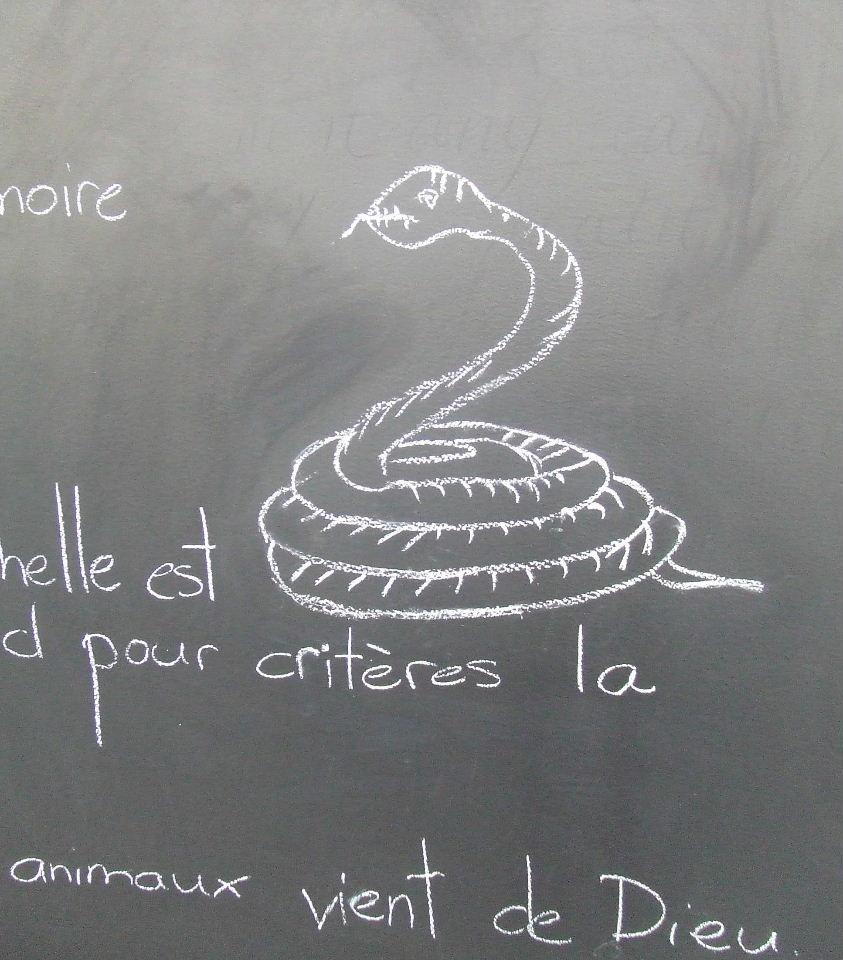 noire
helle est
d pour critères la
animaux vient de Dieu.